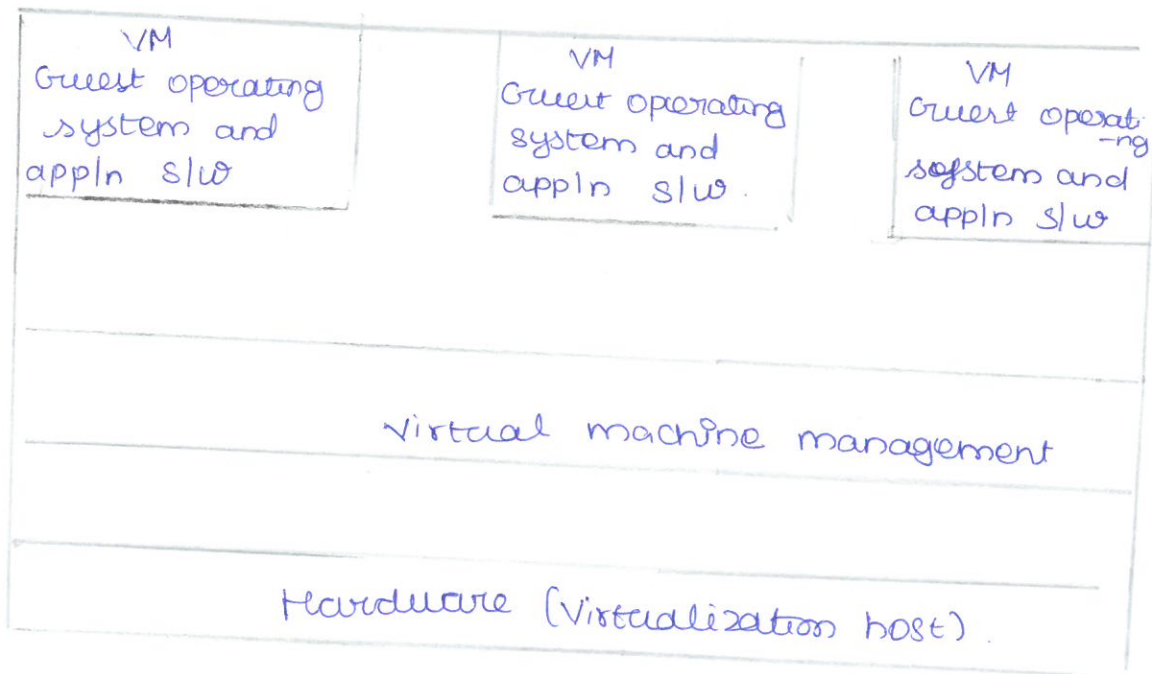 VM
Guest operating
system and
appln s/w
VM
Guest operating
system and
appln s/w.
VM
Guest operat
-ng
sofstem and
appln s/w
Virtual machine management
Hardware (Virtualization host).